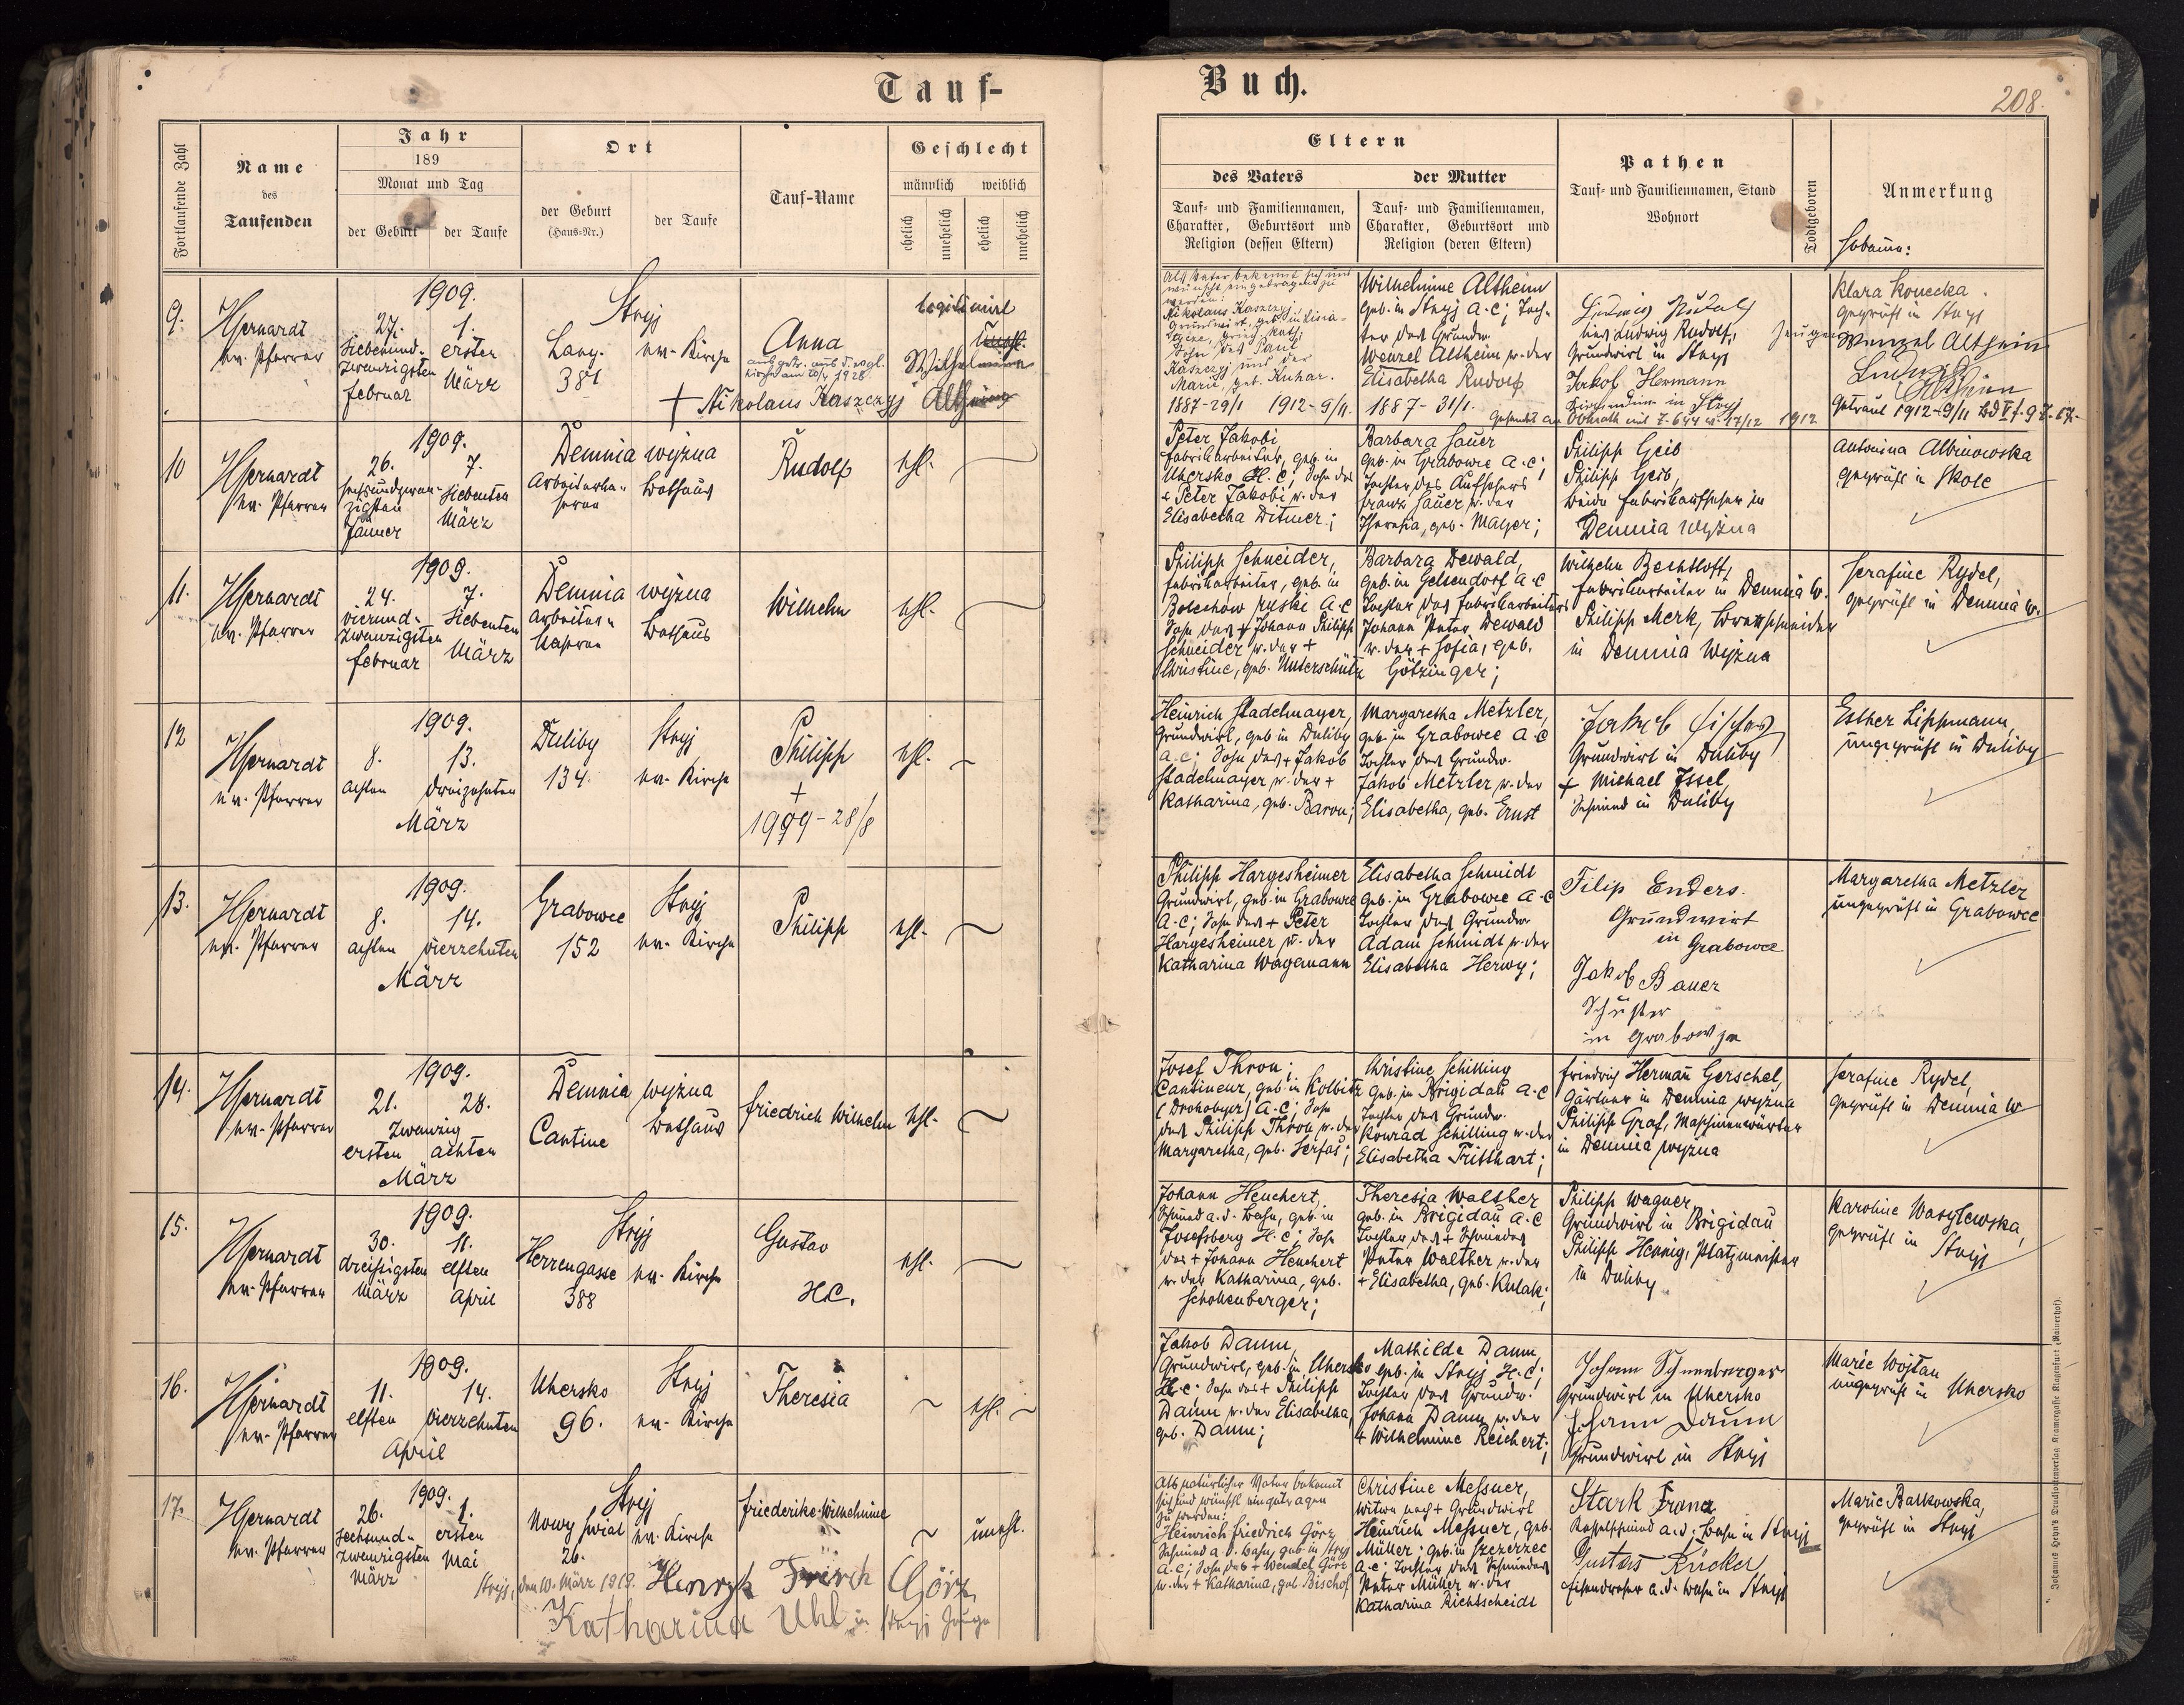 Tauf-
Buch.
208.
Fortlaufende Zahl
Name
des
Taufenden
Jahr
189
Monat und Tag
der Geburt
der Taufe
Ort
der Geburt
(Haus-Nr.)
der Taufe
Tauf-Name
Geschlecht
männlich
weiblich
ehelich
unehelich
ehelich
unehelich
Eltern
des Vaters
der Mutter
Tauf- und Familiennamen,
Charakter, Geburtsort und
Religion (dessen Eltern)
Tauf- und Familiennamen,
Charakter, Geburtsort und
Religion (deren Eltern)
Pathen
Tauf- und Familiennamen, Stand
Wohnort
Todtgeboren
Anmerkung
Hebamme:
9.
ev. Pfarrer
1909.
27.
Siebenund-
zwanzigsten
Februar
1.
ersten
März
Stryj
Lany.
381
ev. Kirche
Anna
legitimirt
+ Nikolaus Kaszczyj
Als Vater bekennt sich und
wünscht eingetragen zu
werden:
Nikolaus Kaszczyj
Sohn des Paul
Kaszczyj und der
Marie, geb. Kuhar.
1887-29/1 1912-9/11.
Wilhelmine Altheim
geb. in Stryj A.C; Toch-
ter des Grundw.
Wenzel Altheim u. der
Elisabetha Rudolf
1887-31/1.
Ludwig Rudolf,
Grundwirt in Stryj
Jakob Hermann
in Stryj
Zeugen
Klara Konecka
geprüft in Stryj
Wenzel Altheim
Ludwig
Altheim
Getraut 1912-9/11
10
ev. Pfarrer
1909.
26.
sechsundzwan-
zigsten
Jänner
7.
Siebenten
März
Demnia wyżna
Arbeiterka-
serne
Bethaus
Rudolf
ehl.
Peter Jakobi,
Fabriksarbeiter, geb. in
Uhersko H.C; Sohn des
+ Peter Jakobi u. der
Elisabetha Ditmer;
Barbara Sauer
geb. in Grabowce A.C;
Tochter des Aufsehers
Franz Sauer u. der
Theresia, geb. Mayer;
Philipp Geib
Philipp Geib,
beide Fabriksaufseher in
Demnia wyżna
Antonina Albinowska
geprüft in Skole
11.
ev. Pfarrer
1909.
24.
vierund-
zwanzigsten
Februar
7.
Siebenten
März
Demnia wyżna
Arbeiter-
kaserne
Bethaus
Wilhelm
ehl.
Philipp Schneider,
Fabriksarbeiter, geb. in
Bolechów ruski A.C
Sohn des + Johann Philipp
Schneider u. der +
Christine, geb. Unterschütz
Barbara Dewald,
geb. in Gelsendorf A.C
Tochter des Fabriksarbeiters
Johann Peter Dewald
u. der + Sofia, geb.
Götzinger;
Wilhelm Bechtloff,
Fabriksarbeiter in Demnia w.
Philipp Merk, Brettschneider
in Demnia Wyżna
Serafine Rydel,
geprüft in Demnia w.
12
ev. Pfarrer
1909.
8.
achten
13.
dreizehnten
März
Duliby
134.
Stryj
ev. Kirche
Philipp
+
ehl.
Heinrich Stadelmayer,
Grundwirt, geb. in Duliby
A.C; Sohn des + Jakob
Stadelmayer u. der +
Katharina, geb. Baron;
Margaretha Metzler,
geb. in Grabowce A.C
Tochter des Grundw.
Jakob Metzler u. der
Elisabetha, geb. Ernst
Jakob Fischer
Grundwirt in Duliby
+ Michael Issel,
Schmied in Duliby
Esther Lippmann,
ungeprüft in Duliby
13.
ev. Pfarrer
1909.
8.
achten
14.
vierzehnten
März
Grabowce
152
Stryj
ev. Kirche
Philipp
ehl.
Philipp Hargesheimer
Grundwirt, geb. in Grabowce
A.C; Sohn des + Peter
Hargesheimer u. der
Katharina Wagemann
Elisabetha Schmidt
geb. in Grabowce A.C
Tochter des Grundw.
Adam Schmidt u. der
Elisabetha Herwy;
Filip Enders.
Grundwirt
in Grabowce
Jakob Bauer
Schuster
in Grabowze
Margaretha Metzler
ungeprüft in Grabowce
14.
ev. Pfarrer
1909.
21.
28.
zwanzig
ersten achten
März
Demnia wyżna
Cantine
Bethaus
Friedrich Wilhelm
ehl.
Josef Thron;
Cantineur, geb. in Kolbitz
(Drohobycz) A.C; Sohn
des Philipp Thron u. der
Margaretha, geb. Serfas;
Christine Schilling
geb. in Brigidau A.C
Tochter des Grundw.
Konrad Schilling u. der
Elisabetha Tritthart;
Friedrich Hermann Gerschel,
Gärtner in Demnia wyżna
Philipp Graf, Maschinenwärter
in Demnia wyżna
Serafine Rydel,
geprüft in Demnia w
15.
ev. Pfarrer
1909.
30.
dreißigsten
März
11.
elften
April
Stryj
Herrengasse
388
ev. Kirche
Gustav
H.C.
ehl.
Johann Heuchert,
Schmied a.d. Bahn, geb. in
Josefsberg H.C; Sohn
des + Johann Heuchert
u. der Katharina, geb.
Schollenberger;
Theresia Walther
geb. in Brigidau A.C
Tochter des + Schmiedes
Peter Walther u. der
+ Elisabetha, geb. Kulak;
Philipp Wagner,
Grundwirt in Brigidau
Philipp Hennig, Platzmeister
in Duliby
Karoline Wasylewska,
geprüft in Stryj
16.
ev. Pfarrer
1909.
11.
elften
14.
vierzehnten
April
Uhersko
96.
Stryj
ev. Kirche
Theresia
ehl.
Jakob Daum,
Grundwirt, geb. in Uhersko
H.C; Sohn des + Philipp
Daum u. der Elisabetha,
geb. Daum;
Mathilde Daum,
geb. in Stryj H.C;
Tochter des Grundw.
Johann Daum u. der
+ Wilhelmine Reichert;
Johann
Grundwirt in Uhersko
Johann Daum
Grundwirt in Stryj
Marie Wojtan
ungeprüft in Uhersko
17.
ev. Pfarrer
1909.
26.
sechsund-
zwanzigsten
März
1.
ersten
Mai
Stryj
Nowy świat
26.
ev. Kirche
Friederike Wilhelmine
unehl.
Stryj, den 10. März 1919.
Görz
Katharina Uhl in Stryj Zeuge
Als natürlicher Vater bekennt
sich und wünscht eingetragen
zu werden:
Heinrich Friedrich Görz
Schmied a.d. Bahn, geb. in Stryj
A.C; Sohn des + Wendel Görz
u. der + Katharina, geb. Bischof
Christine Messner,
Witwe nach + Grundwirt
Heinrich Messner, geb.
Müller; geb. in Szczerzec
A.C; Tochter des Schmiedes
Peter Müller u. der
Katharina Richtscheidt
Stark Franz
Kesselschmied a.d. Bahn in Stryj
Gustav Rücker
Eisendreher a.d. Bahn in Stryj
Marie Balkowska,
geprüft in Stryj
Johannes Heyn's Drucksortenverlag Kramergasse Klagenfurt (Rainerhof).